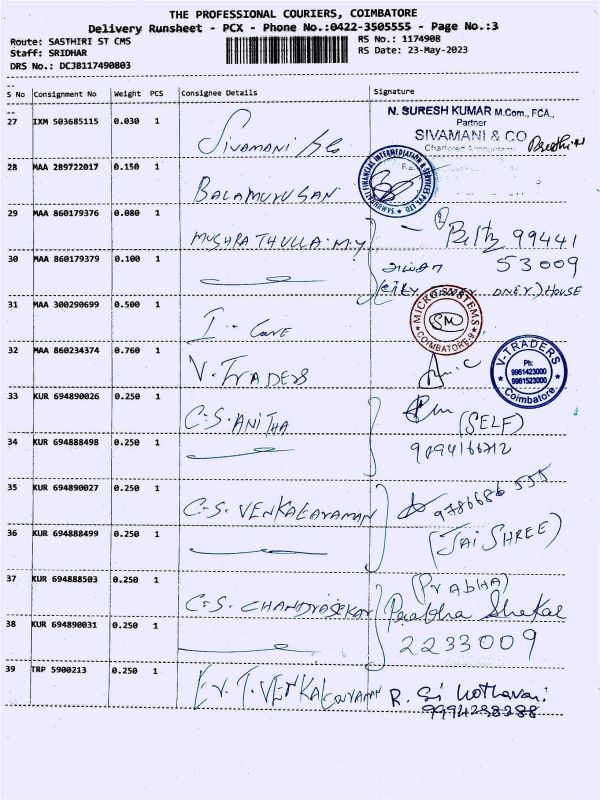 THE PROFESSIONAL COURIERS, COIMBATORE
Delivery Runsheet - PCX - Phone No.:0422-3505555 - Page No.:3
Route: SASTHIRI ST CMS
Staff: SRIDHAR
DRS No.: DCJB117490803
RS No.: 1174908
RS Date: 23-May-2023
S No Consignment No Weight PCS Consignee Details Signature
27 IXM 503685115 0.030 1 Sivamani
N. SURESH KUMAR M.Com., FCA.,
Partner
SIVAMANI & CO
Chartered Accountants
28 MAA 289722017 0.150 1 BALAMURUGAN
29 MAA 860179376 0.080 1 MUSHRATHULLA. M.Y 99441
30 MAA 860179379 0.100 1 53009
HOUSE
31 MAA 300290699 0.500 1 I - Care
MICRO SYSTEMS
SM
COIMBATORE-9
32 MAA 860234374 0.760 1 V. TRADERS
V-TRADERS
Ph:
9961423000
9961523000
Coimbatore
33 KUR 694890026 0.250 1 C.S. ANITHA (SELF)
34 KUR 694888498 0.250 1
35 KUR 694890027 0.250 1 C.S. VENKATARAMAN 9786686 555
36 KUR 694888499 0.250 1 (JAI SHREE)
37 KUR 694888503 0.250 1 C.S. CHANDRASEKAR (PRABHA)
Prabha Shekar
38 KUR 694890031 0.250 1 2233009
39 TRP 5900213 0.250 1 Er. T. VENKATARAMAN
9994288288